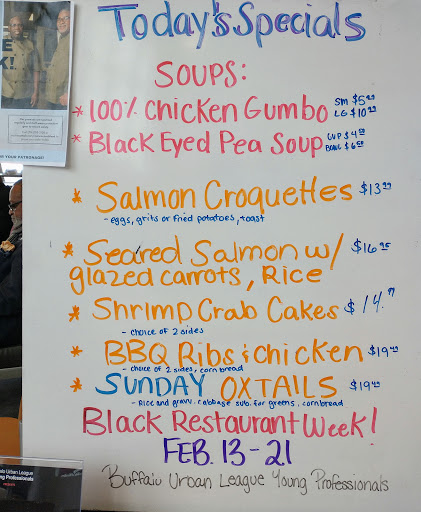 Today's Specials
SOUPS:
* 100% Chicken Gumbo SM $5
LG $10
* Black Eyed Pea Soup CUP $4
BOWL $6
* Salmon Croquettes $13
- eggs, grits or fried potatoes, toast
* Seared Salmon w/ $16
glazed carrots, Rice
* Shrimp Crab Cakes $14
- choice of 2 sides
* BBQ Ribs & Chicken $19
- choice of 2 sides, cornbread
* SUNDAY OXTAILS $19
- Rice and gravy, cabbage sub. for greens, cornbread
Black Restaurant Week!
FEB. 13-21
Buffalo Urban League Young Professionals
YOUR PATRONAGE!
Urban League
Professionals